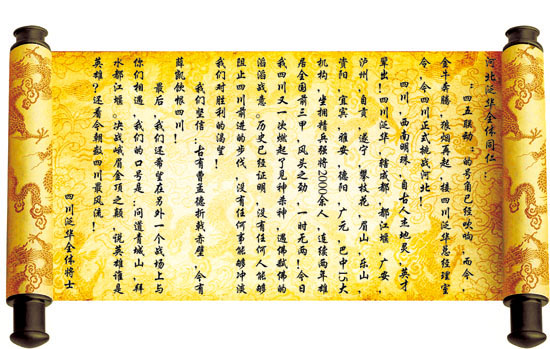 河北泛华全体同仁:
:四五联动:的号角已经吹响,而今,
金牛奔腾,硝烟再起,接四川泛华总经理室
令,令四川正式挑战河北!
四川,西南明珠,自古人杰地灵,英才
辈出!四川泛华,辖成都,都江堰,广安,
泸州,自贡,遂宁,攀枝花,眉山,乐山,
资阳,宜宾,雅安,德阳,广元,巴中15大
机构,坐拥精兵强将2000余人,连续两年雄
居全国前三甲,风头之劲,一时无两!今日
我四川又一次燃起了见神杀神,遇佛弑佛的
滔滔战意。历史已经证明,没有任何人能够
阻止四川前进的步伐,没有任何事能够冲淡
我们对胜利的渴望!
我们坚信:古有曹孟德折戟赤壁,今有
薛凯饮恨四川!
最后,我们还希望在另外一个战场上与
你们相遇,我们的口号是:问道青城山,拜
水都江堰。决战峨眉金顶之巅,说英雄谁是
英雄?还看今朝数四川最风流!
四川泛华全体将士